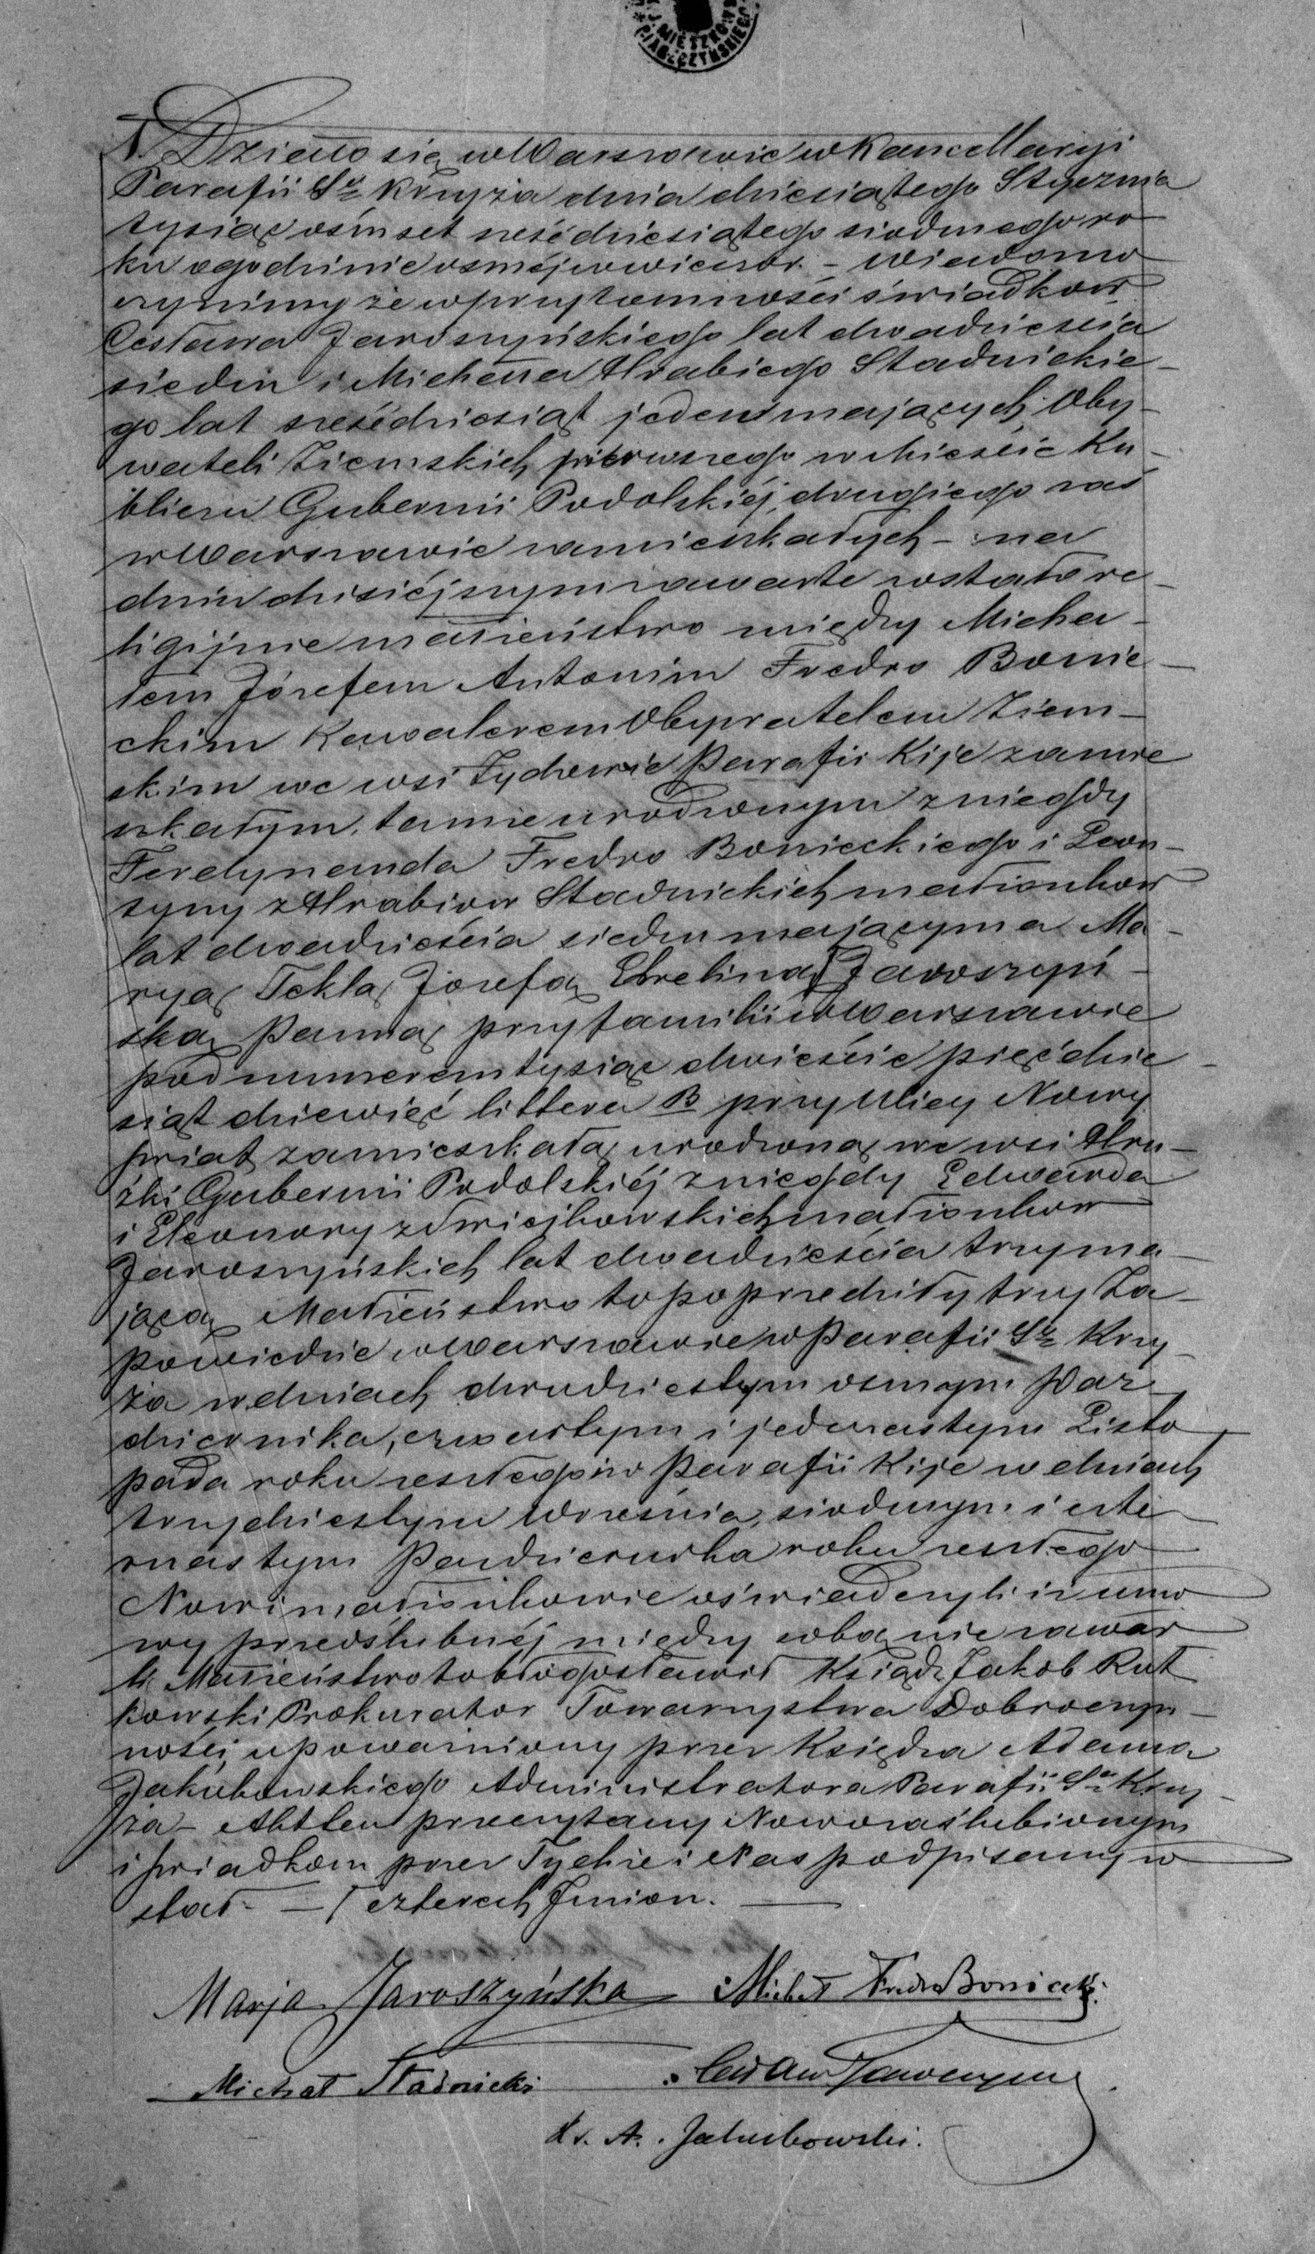 MIESZKOWA
PIASZCZYŃSKIEGO
1. Działo się w Warszawie w Kancellaryi
Parafii Sgo Krzyża dnia dziesiątego Stycznia
tysiąc ośmset sześćdziesiątego siódmego ro-
ku o godzinie osméj wieczor. – Wiadomo
czynimy że w przytomności świadków
Cesława Jaroszyńskiego lat dwadzieścia
siedm i Michała Hrabiego Stadnickie-
go lat sześćdziesiąt jeden mających, Oby-
wateli Ziemskich, pierwszego w mieście Ku-
bliczu Gubernii Podolskiéj, drugiego zaś
w Warszawie zamieszkałych – na
dniu dzisiéjszym zawarte zostało re-
ligijnie małżeństwo między Micha-
łem Józefem Antonim Fredro Bonie-
ckim Kawalerem Obywatelem Ziem-
skim we wsi Żydowie Parafii Kije zamie
szkałym, tamże urodzonym z niegdy
Ferdynanda Fredro Bonieckiego i Leon-
tyny z Hrabiów Stadnickich małżonków
lat dwadzieścia siedm mającym a Ma-
ryą Teklą Józefą Eweliną Jaroszyń-
ską Panną przy familii w Warszawie
pod numerem tysiąc dwieście pięćdzie-
siąt dziewięć littera B przy Ulicy Nowy
świat zamieszkałą, urodzoną we wsi Hru-
żki Gubernii Podolskiéj z niegdy Edwarda
i Eleonory z małżonków
Jaroszyńskich lat dwadzieścia trzy ma-
jącą Małżeństwo to poprzedziły trzy Za-
powiedzie w Warszawie w Parafii Sgo Krzy-
ża w dniach dwudziestym osmym Paź-
dziernika, czwartym i jedenastym Listo
pada roku zeszłego i w Parafii Kije w dniach
trzydziestym Września, siódmym i czte
rnastym Października roku zeszłego
Nowi małżonkowie oświadczyli iż umo
wy przedślubnéj między sobą nie zawar
li. Małżeństwo to błogosławił Ksiądz Jakób Rut
kowski Prokurator Towarzystwa Dobroczyn-
ności upoważniony przez Księdza Adama
Jakubowskiego Administratora Parafii Sgo Krzy-
ża – Akt ten przeczytany Nowozaślubionym
i świadkom przez Tychże i Nas podpisany zo
stał. – czterech Imion. —
Marja Jaroszyńska Michał Fredro Boniecki.
Michał Stadnicki
Ks. A. Jakubowski.